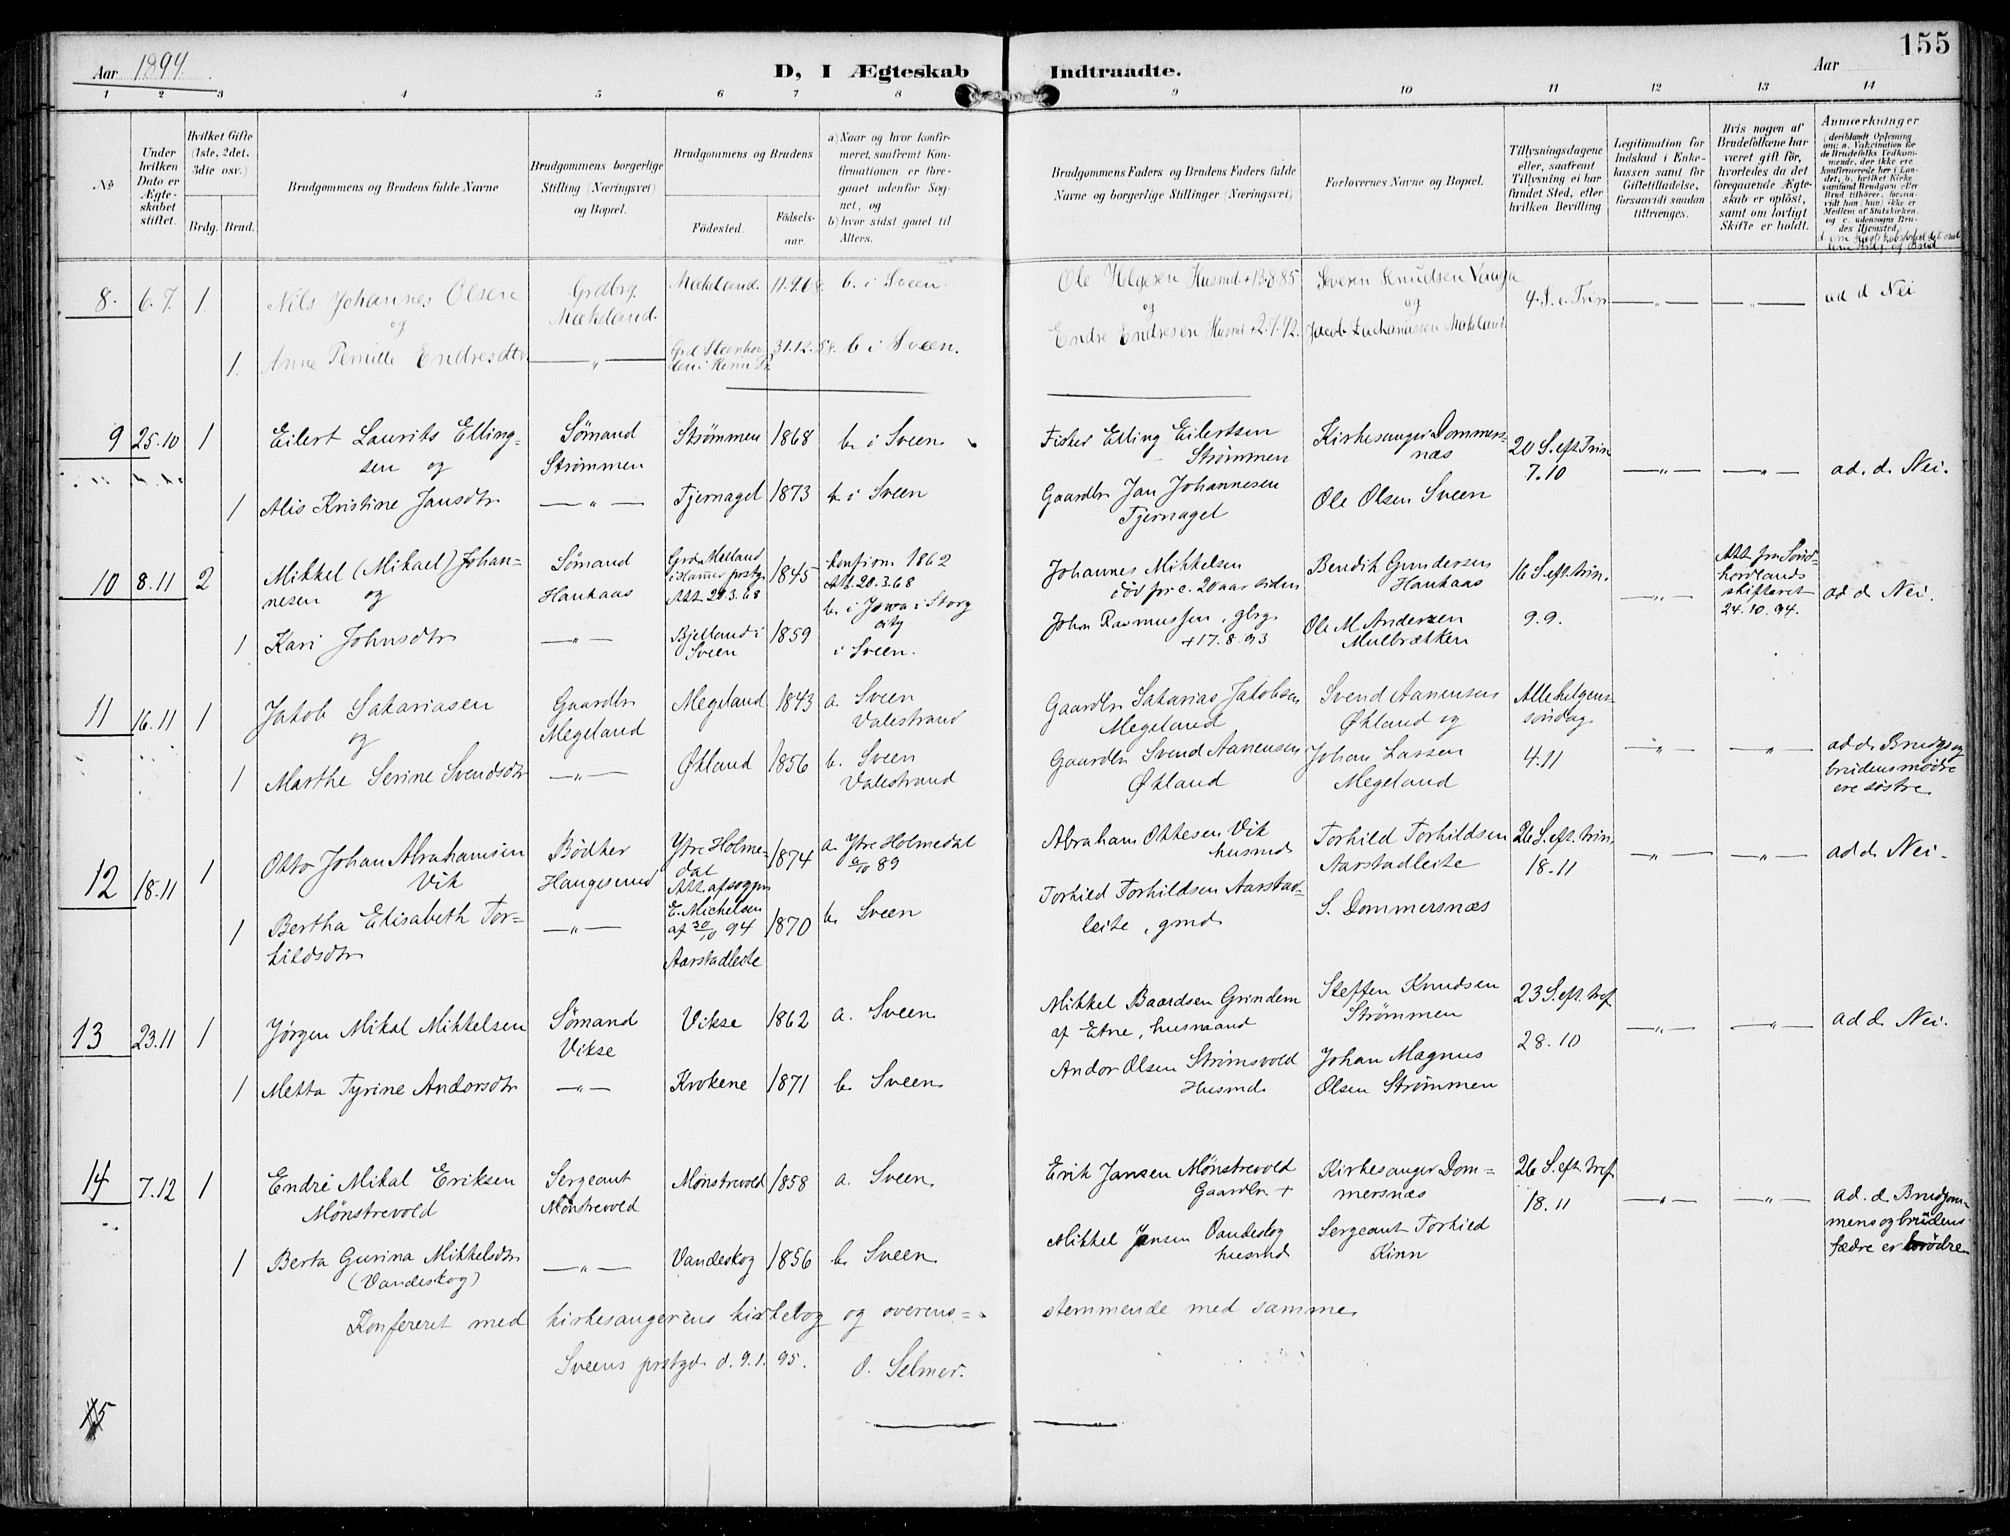 155
Aar 1894.
D, I Ægteskab Indtraadte.
Aar
1 2 3 4 5 6 7 8 9 10 11 12 13 14
No
Under hvilken Dato er Ægteskabet stiftet.
Hvilket Gifte (1ste, 2det, 3die osv.)
Brdg. Brud.
Brudgommens og Brudens fulde Navne
Brudgommens borgerlige Stilling (Næringsvei) og Bopæl.
Brudgommens og Brudens
Fødested. Fødsels-aar.
a) Naar og hvor konfirmeret, saafremt Konfirmationen er foregaaet udenfor Sognet, og
b) hvor sidst gaaet til Alters.
Brudgommens Faders og Brudens Faders fulde Navne og borgerlige Stillinger (Næringsvei)
Forlovernes Navne og Bopæl.
Tillysningsdagene eller, saafremt Tillysning ei har fundet Sted, efter hvilken Bevilling.
Legitimation for Indskud i Enkekassen samt for Giftetilladelse, forsaavidt saadan tiltrænges.
Hvis nogen af Brudefolkene har været gift før, hvorledes da det foregaaende Ægteskab er opløst, samt om lovligt Skifte er holdt.
Anmærkninger
8. 6.7. 1 Nils Johannes Olsen Grdbrg. Mækeland. b. i Sveen. Ole Helgesen Husmd. +13.8.85 Severin Knudsen
og Mækeland. og og 4. S. e. Trin —„— —„— ad d Nei
1. Anne Pernille Endresdtr —„— 31.12. b i Sveen. Endre Endresen Husmd +2.7.72. Jacob Zachariassen Mækeland
9 25.10 1 Eilert Laurits Elling- Sømand Strømmen 1868 b. i Sveen Fisker Elling Eilertsen Kirkesanger Dommers- 20 S. eft. Trin
sen og Strømmen Strømmen næs 7.10 —„— —„— ad. d. Nei.
1 Alis Kristine Jansdtr —„— Tjernagel 1873 b. i Sveen Gaardbr Jan Johannesen Ole Olsen Sveen
Tjernagel
10 8.11 2 Mikkel (Mikael) Johan- Sømand Grd. Melland 1845 konfirm. 1862 Johannes Mikkelsen Bendik Gundersen 16 S. eft. trin. Att. fra Sønd-
nesen og Haukaas Att. 20.3.68 Att. 20.3.68 død for c. 20 aar siden Haukaas —„— hordlands ad d Nei.
b. i Jowa i Story skifteret
city 24.10.94.
1 Kari Johnsdtr —„— Bjelland i 1859 i Sveen. John Rasmussen, gbrg. Ole M Andersen 9.9.
Sveen +17.8.93 Mulbrækken
11 16.11 1 Jakob Sakariasen Gaardbr Megeland 1843 a. Sveen Gaardbr Sakarias Jakobsen Svend Aanensen Allehelgens-
og Megeland Valestrand Megeland Økland og søndag
1 Marthe Serine Svendsdtr —„— Økland 1856 b. Sveen Gaardbr Svend Aanensen Johan Larsen 4.11 —„— —„— ad d. Brudgs og
Valestrand Økland Megeland brudens mødre
ere søstre.
12 18.11 1 Otto Johan Abrahamsen Bødker Ytre Holme- 1874 a. Ytre Holmedal Abraham Ottesen Vik Torkild Torkildsen 26 S. eft. trin.
Vik Haugesund dal 89 husmd Aarstadleite 18.11 —„— —„— ad d. Nei.
Att. af sogpr.
1 Bertha Elisabeth Tor- —„— E. Michelsen 1870 b. Sveen Torkild Torkildsen Aarstad- S. Dommersnæs
kildsdtr af 30/10 94 leite, gmd.
Aarstadleite
13 23.11 1 Jørgen Mikal Mikkelsen Sømand Vikse 1862 a. Sveen Mikkel Baardsen Grindem Steffen Knudsen 23 S. eft. tref.
Vikse af Etne, husmand Strømmen 28.10 —„— —„— ad d. Nei.
1 Metta Tyrine Andorsdtr —„— Krokene 1871 b. Sveen Andor Olsen Strømsvold Johan Magnus
Husmd. Olsen Strømmen
14 7.12 1 Endre Mikal Eriksen Sergeant Mønstrevold 1858 a. Sveen Erik Jansen Mønstrevold Kirkesanger Dom- 26 S. eft. tref.
Mønstrevold Mønstrevold Gaardbr + mersnæs 18.11 —„— —„— ad. d. Brudgom-
mens og brudens
1 Berta Gurina Mikkelsdtr —„— Vandeskog 1856 b. Sveen Mikkel Jansen Vandeskog Sergeant Torkild fædre er brødre
(Vandeskog) husmd Kinn
Konfereret med kirkesangerens kirkebog og overens- stemmende med samme.
Sveens prstgd. d. 9.1. 95. O. Selmer.
15